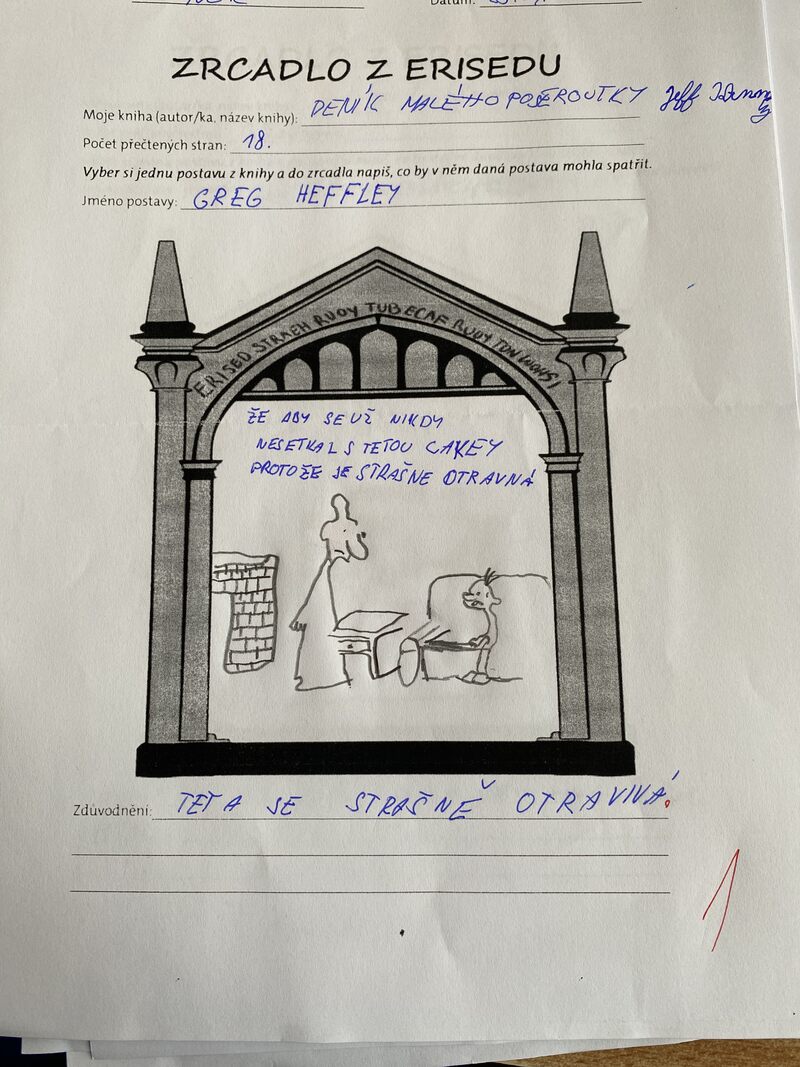 Datum:
ZRCADLO Z ERISEDU
Moje kniha (autor/ka, název knihy): DENÍK MALÉHO POSEROUTKY Jeff
Počet přečtených stran: 18.
Vyber si jednu postavu z knihy a do zrcadla napiš, co by v něm daná postava mohla spatřit.
Jméno postavy: GREG HEFFLEY
ERISED STRAEH RUOY TUBECAF RUOY TON WOHSI
ŽE ABY SE UŽ NIKDY
NESETKAL S TETOU CAKEY
PROTOŽE JE STRAŠNE OTRAVNÁ
Zdůvodnění: TETA JE STRAŠNĚ OTRAVNÁ.
1